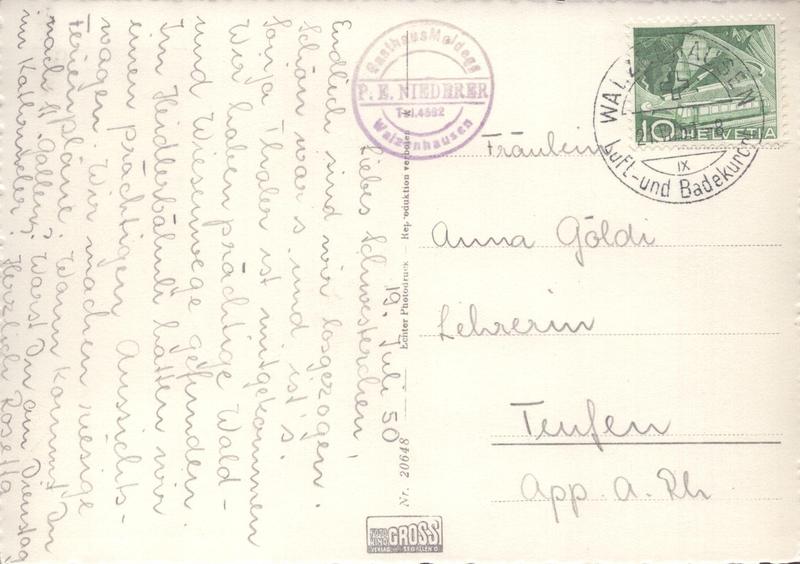 19. Juli 50
Liebes Schwesterchen!
Endlich sind wir losgezogen.
Schön war's und ist's!
Sonja Thaler ist mitgekommen
Wir haben prächtige Wald-
und Wiesenwege gefunden.
Im Heidlerbähnli hatten wir
einen prächtigen Aussichts-
wagen. Wir machen riesige
Ferienpläne. Wann kommst Du
nach St. Gallen? Warst Du am Dienstag
im
Herzlich Rosetta
Gasthaus Meldegg
P. E. NIEDERER
Tel. 4592
Walzenhausen
WALZENHAUSEN
IX
Luft- und Badekurort
10 HELVETIA
Fräulein
Anna Göldi
Lehrerin
Teufen
App. a. Rh
Nr. 20648 Echter Photodruck Reproduktion verboten
FOTO
GROSS
VERLAG ST. GALLEN